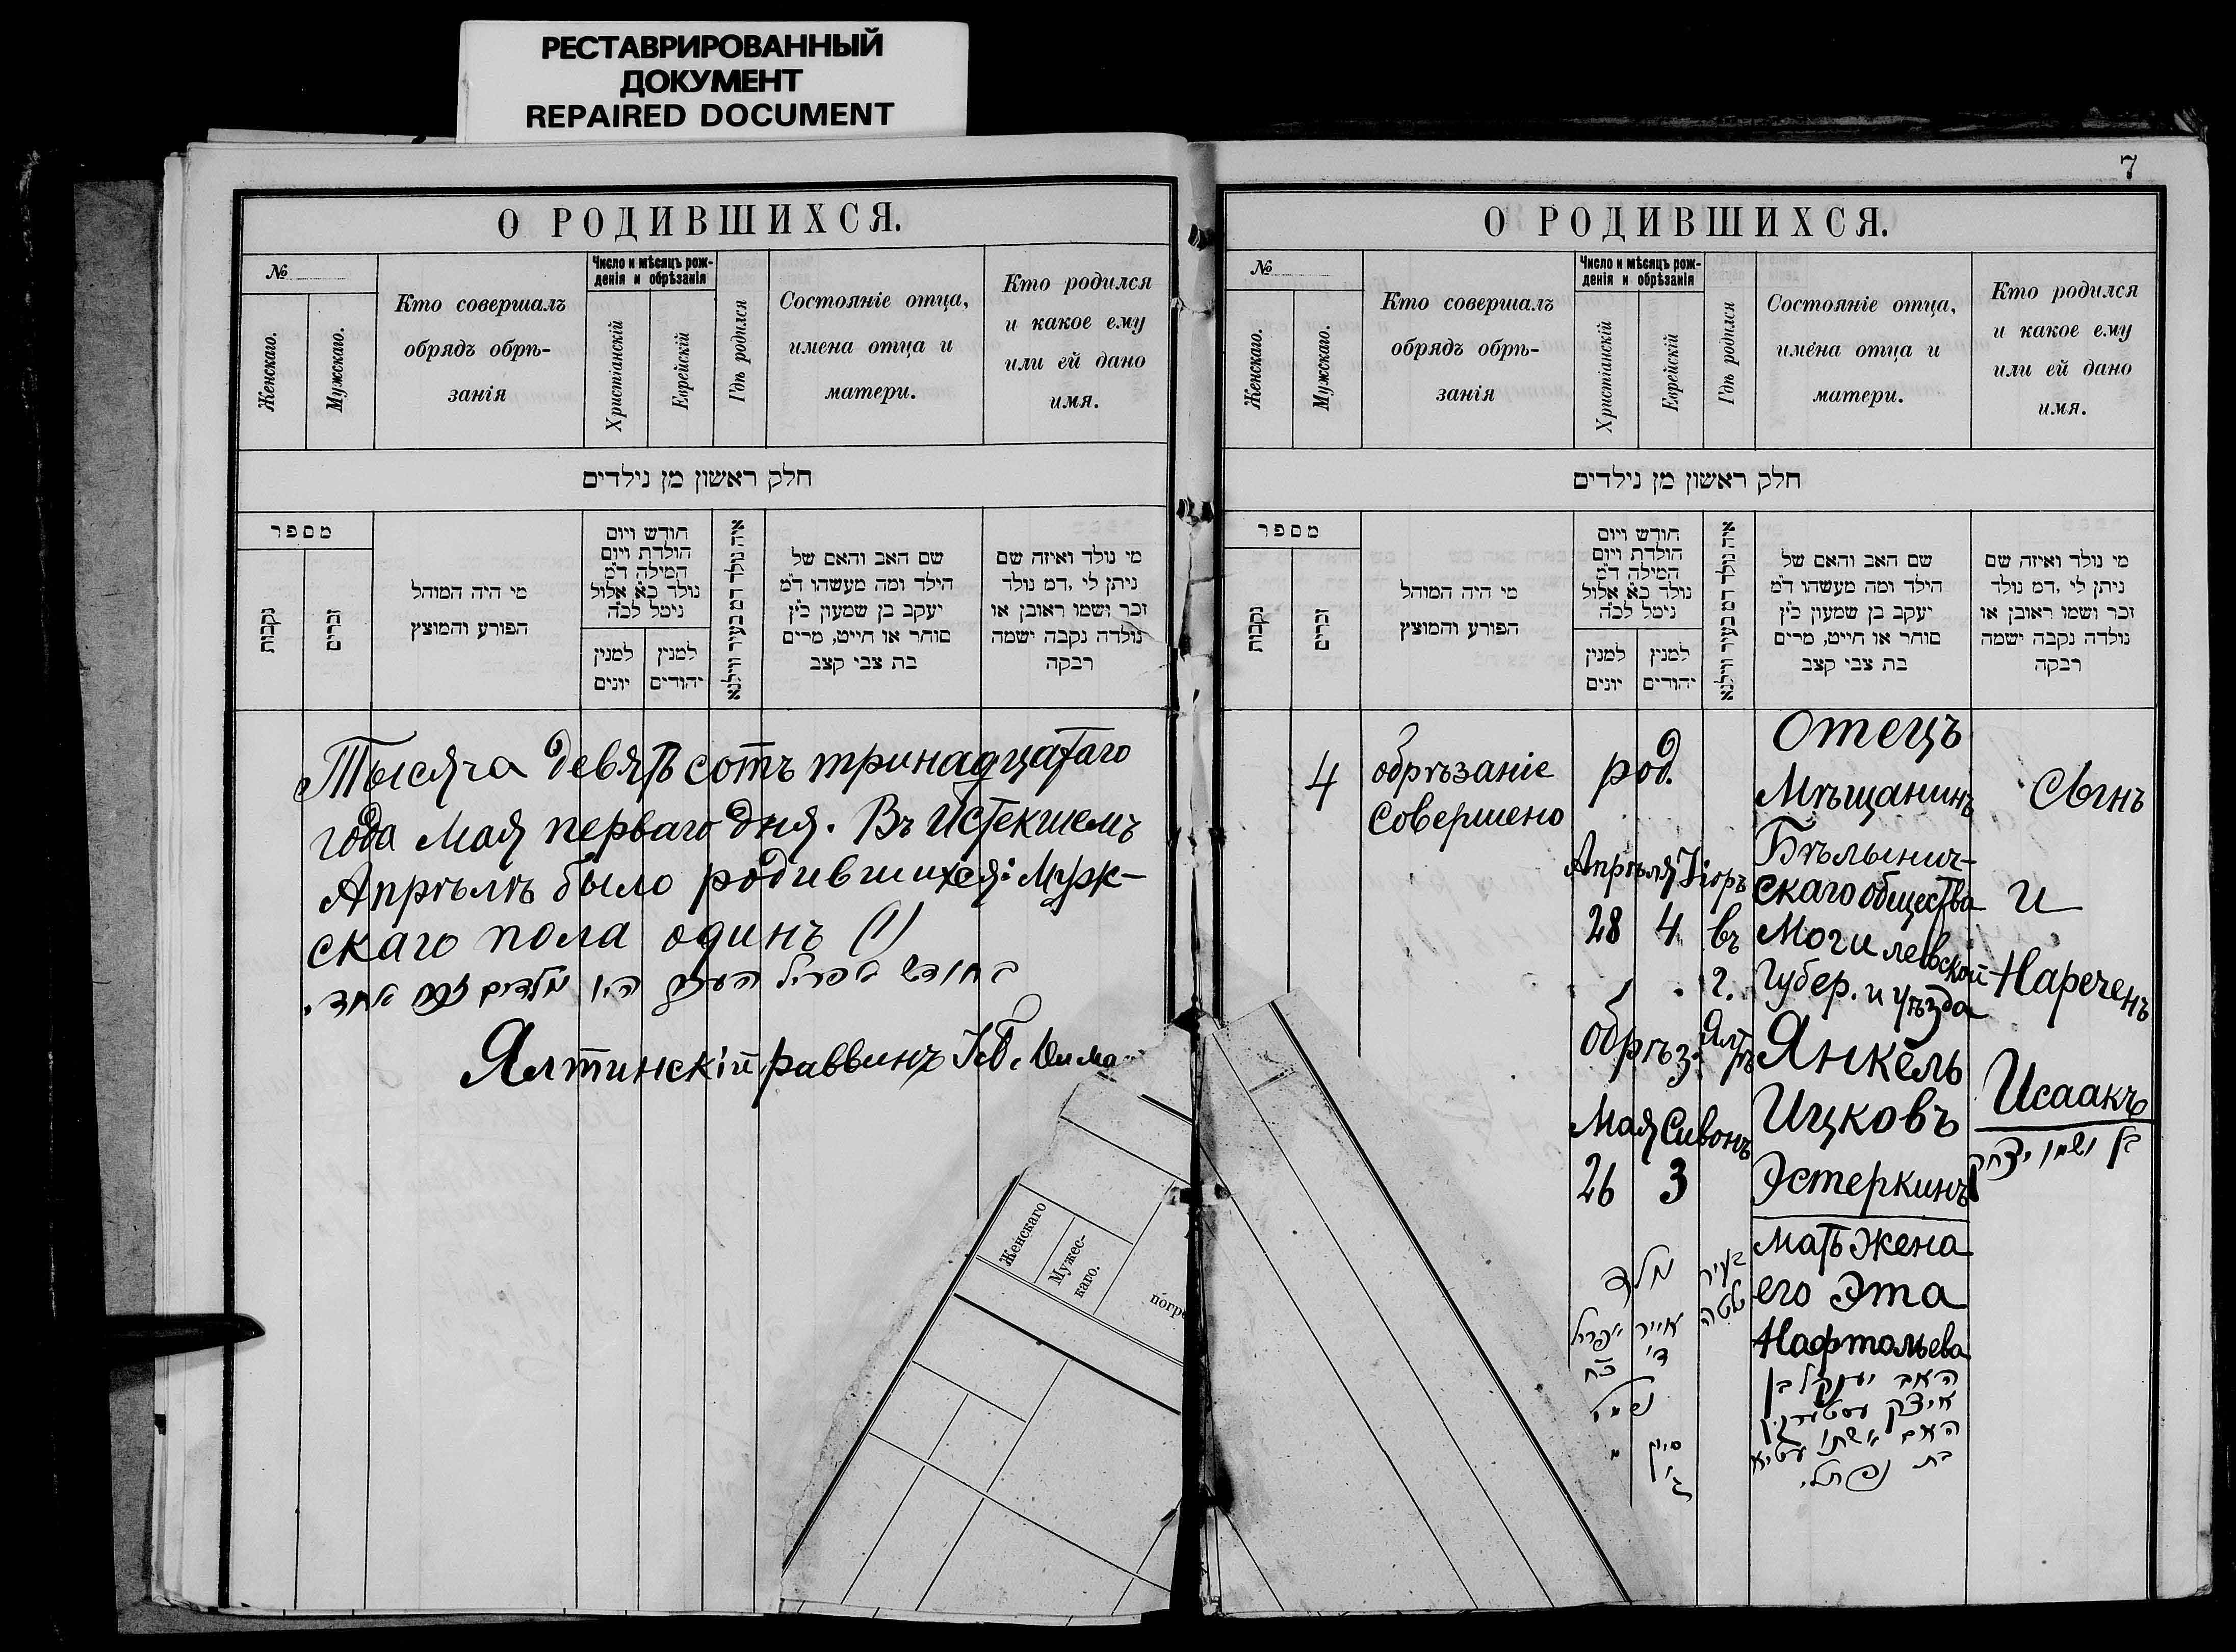 РЕСТАВРИРОВАННЫЙ
ДОКУМЕНТ
REPAIRED DOCUMENT
О РОДИВШИХСЯ.
№
Женскаго.
Мужскаго.
Кто совершалъ
обрядъ обрѣ-
занія
Число и мѣсяцъ рож-
денія и обрѣзанія
Христіанскій
Еврейскій
Гдѣ родился
Состояніе отца,
имена отца и
матери.
Кто родился
и какое ему
или ей дано
имя.
חלק ראשון מן נילדים
מספר
נקבות
זכרים
מי היה המוהל
הפורע והמוצץ
חודש ויום
הולדת ויום
המילה ד״מ
נולד כ״א אלול
נימל לכ״ה
למנין
יונים
למנין
יהודים
איה נולד דמ בעיר ווילנא
שם האב והאם של
הילד ומה מעשהו ד״מ
יעקב בן שמעון כ״ץ
סוחר או חייט, מרים
בת צבי קצב
מי נולד ואיזה שם
ניתן לי, דמ נולד
זכר ושמו ראובן או
נולדה נקבה ישמה
רבקה
Тысяча девятьсотъ тринадцатаго
года Мая перваго дня. Въ истекшемъ
Апрѣлѣ было родившихся: Муж-
скаго пола одинъ (1)
בחודש אפריל העבר היו נולדים זכר אחד.
Ялтинскій раввинъ
Женскаго
Мужес-
каго.
погре
7
О РОДИВШИХСЯ.
№
Женскаго.
Мужскаго.
Кто совершалъ
обрядъ обрѣ-
занія
Число и мѣсяцъ рож-
денія и обрѣзанія
Христіанскій
Еврейскій
Гдѣ родился
Состояніе отца,
имена отца и
матери.
Кто родился
и какое ему
или ей дано
имя.
חלק ראשון מן נילדים
מספר
נקבות
זכרים
מי היה המוהל
הפורע והמוצץ
חודש ויום
הולדת ויום
המילה ד״מ
נולד כ״א אלול
נימל לכ״ה
למנין
יונים
למנין
יהודים
איה נולד דמ בעיר ווילנא
שם האב והאם של
הילד ומה מעשהו ד״מ
יעקב בן שמעון כ״ץ
סוחר או חייט, מרים
בת צבי קצב
מי נולד ואיזה שם
ניתן לי, דמ נולד
זכר ושמו ראובן או
נולדה נקבה ישמה
רבקה
4
обрѣзаніе
совершено
род.
Апрѣля
28
Іоръ
4
обрѣз.
Мая
26
Сивонъ
3
נולד
אפריל
כ״ח
אייר
ד׳
נימול
סיון
ג׳
въ
г.
Ял
тѣ
בעיר
יאלטה
Отецъ
Мѣщанинъ
Бѣлынич-
скаго общества
Могилевской
Губер. и уѣзда
Янкель
Ицковъ
Эстеркинъ
мать жена
его Эта
Нафтольева
האב יענקל בן
איצק עסטערקין
האם אשתו עטיא
בת נפתלי.
Сынъ
и
Нареченъ
Исаакъ
בן ושמו יצחק